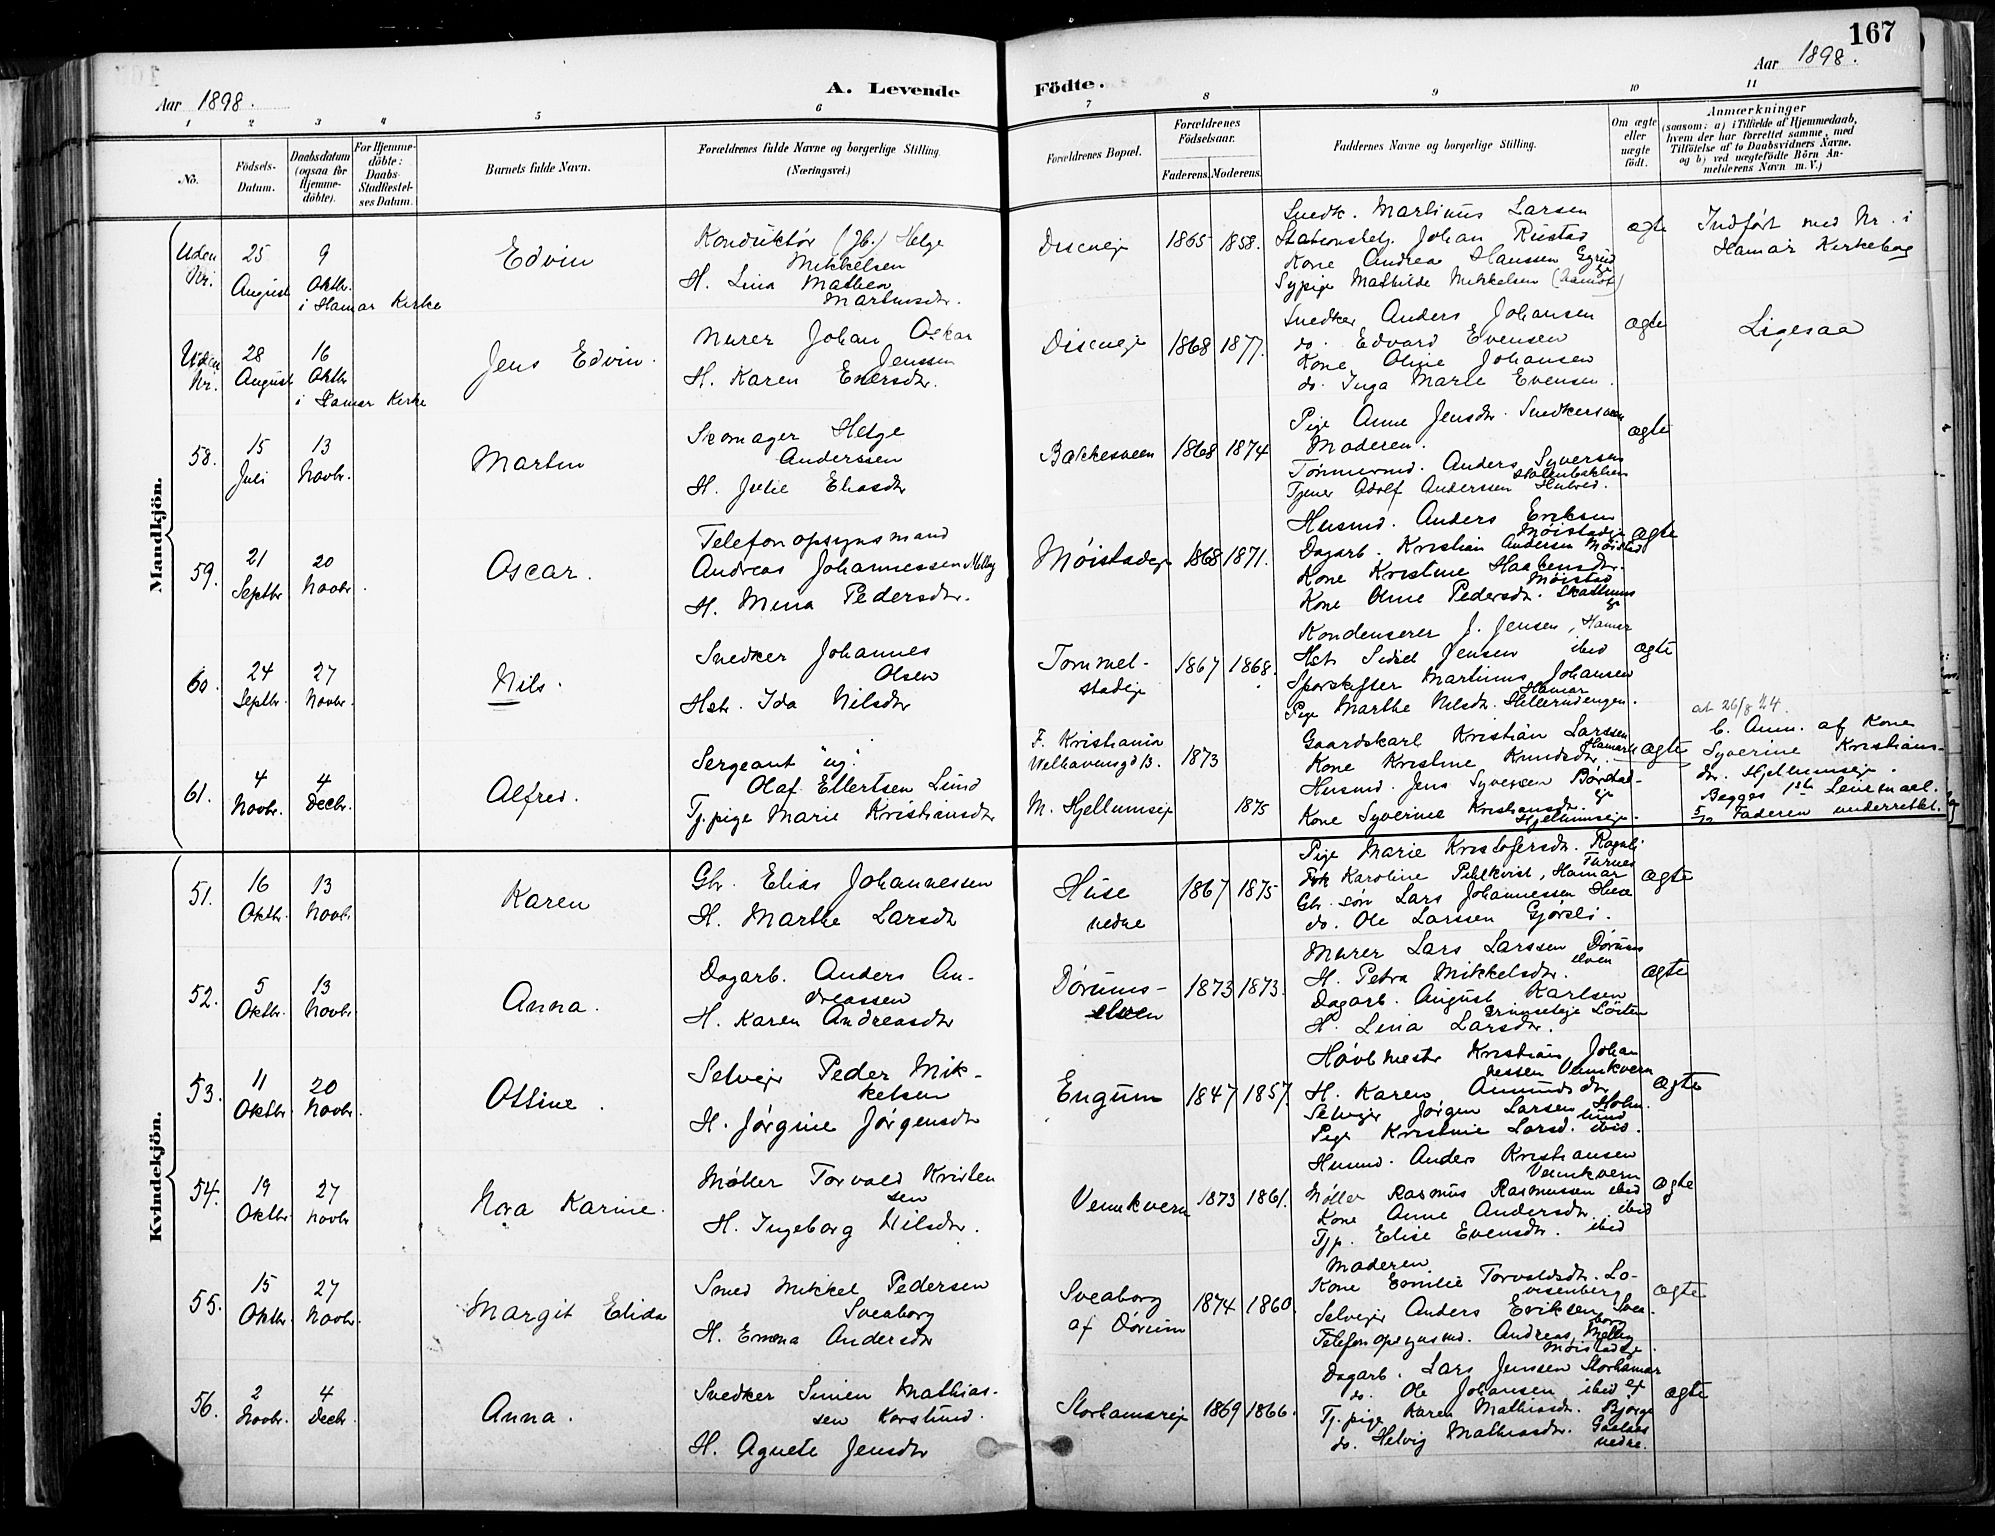 167
Aar 1898.
A. Levende
Födte.
Aar 1898.
1 2 3 4 5 6 7 8 9 10 11
No.
Födsels-
Datum.
Daabsdatum
(ogsaa for
Hjemme-
döbte).
For Hjemme-
döbte:
Daabs-
Stadfæstel-
ses Datum.
Barnets fulde Navn.
Forældrenes fulde Navne og borgerlige Stilling
(Næringsvei.)
Forældrenes Bopæl.
Forældrenes
Födselsaar.
Faderens. Moderens.
Faddernes Navne og borgerlige Stilling.
Om ægte
eller
uægte
födt.
Anmærkninger
(saasom: a) i Tilfælde af Hjemmedaab,
hvem der har forrettet samme, med
Tilföielse af to Daabsvidners Navne,
og b) ved uægtefödte Börn An-
melderens Navn m. V.)
Mandkjön.
Uden
Nr.
25
August
9
Oktbr.
i Hamar Kirke
Edvin
Konduktør (Jb.) Helge
Mikkelsen
H. Lina Mathea
Martinsdtr.
Diseneje
1865 1858.
Snedk. Martinus Larsen
Stationsbetj. Johan Rustad
Kone Andrea Hanssen
Sypige Mathilde Mikkelsen
ægte
Indført med Nr. i
Hamar Kirkebog
Uden
Nr.
28
August
16
Oktbr
i Hamar Kirke
Jens Edvin.
Murer Johan Oskar
Jenssen
H. Karen Evensdtr.
Diseneje
1868 1877.
Snedker Anders Johansen
do. Edvard Evensen
Kone Oline Johansen
do. Inga Marie Evensen.
ægte
Ligesaa
58.
15
Juli
13
Novbr.
Martin
Skomager Helge
Anderssen
H. Julie Eliasdtr
Bækkesveen
1868 1874
Pige Anne Jensdtr. Snedkersveen
Moderen.
Tømmermd. Anders Syversen
Tjener Adolf Anderssen
ægte
59.
21
Septbr
20
Novbr.
Oscar.
Telefonopsynsmand
Andreas Johannessen Melby
H. Mina Pedersdtr.
Møistadeje
1868 1871.
Husmd. Anders Eriksen
Møistadeje
Dagarb. Kristian Andersen Møistad
Kone Kristine Haakensdtr.
Møistad
Kone Oline Pedersdtr.
ægte
60.
24
Septbr.
27
Novbr.
Nils.
Snedker Johannes
Olsen
Hstr. Ida Nilsdtr
Tommel-
stadeje
1867 1868.
Kondenserer J. Jensen, Hamar
Hstr Sidsel Jensen ibid
Sporskifter Martinus Johansen
Hamar
Pige Marthe Nilsdtr. Hellerudengen.
ægte
61.
4
Novbr.
4
Decbr.
Alfred.
Sergeant ug.
Olaf Ellertsen Lund
Tj.pige Marie Kristiansdtr
F. Kristiania
Welhavensgd 13.
M. Hjellumseje
1873
1875
Gaardskarl Kristian Larssen
Kone Kristine Knudsdtr. Hamar
Husmd. Jens Syversen Børstad-
eje
Kone Syverine Kristiansdtr.
Hjellumseje.
uægte
at 26/8 24.
C. Anm. af Kone
Syverine Kristians-
dtr. Hjellumseje.
Begges 1ste Leiermaal.
5/12 Faderen underrettet.
Kvindekjön.
51.
16
Oktbr.
13
Novbr.
Karen
Gbr. Elias Johannessen
H. Marthe Larsdtr
Huse
nedre
1867 1875
Pige Marie Kristofersdtr.
Furnes
Frk Karoline Pihlkvist, Hamar
Gbr. søn Lars Johannessen Huse
do. Ole Larssen Gjørsli.
ægte
52.
5
Oktbr.
13
Novbr.
Anna.
Dagarb. Anders An-
dreassen
H. Karen Andreasdtr
Dørums-
elven
1873 1873.
Murer Lars Larssen Dørums
elven
H. Petra Mikkelsdtr.
Dagarb. August Karlsen
Grinseteje Löiten
H. Lina Larsdtr.
ægte
53.
11
Oktbr
20
Novbr.
Ottine.
Selvejer Peder Mik-
kelsen
H. Jørgine Jørgensdtr
Engum
1847 1857.
Høvlmester Kristian Johan
nessen Vennkvern
H. Karen Amundsdtr
Selvejer Jørgen Larssen Holm-
lund
Pige Kristine Larsd. ibid.
ægte
54.
19
Oktbr.
27
Novbr
Nora Karine.
Møller Torvald Kristen
sen
H. Ingeborg Nilsdtr.
Vennkvern
1873 1861.
Husmd. Anders Kristiansen
Vennkvern
Møller Rasmus Rasmussen ibid
Kone Anne Andersdtr. ibid
Tjp. Elise Evensdtr. ibid
ægte
55.
15
Oktbr.
27
Novbr.
Margit Elida
Smed Mikkel Pedersen
Sveaborg
H. Emma Andersdtr
Sveaborg
af Dørum
1874 1860.
Moderen
Kone Emilie Torvaldsdtr. Lo-
visenberg
Selvejer Anders Eriksen Svea-
borg
Telefonopsynsmd. Andreas Melby
Møistadeje.
ægte
56.
2
Novbr.
4
Decbr.
Anna.
Snedker Simen Mathias-
sen Korslund.
H. Agnete Jensdtr
Storhamareje
1869 1866.
Dagarb. Lars Jenssen Storhamar
ej
do. Ole Johansen ibid
Tj.pige Karen Mathiasdtr. Bjørge
do. Helvig Mathiasdtr. Gaalaas
nedre.
ægte